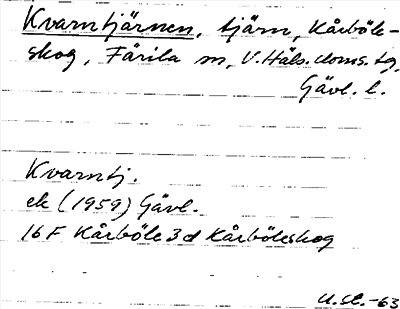 Kvarntjärnen, tjärn, Kårböle-
skog, Färila sn, V. Häls. doms. tg,
Gävl. l.
Kvarntj.
ek (1959) Gävl.
16 F Kårböle 3 d Kårböleskog
U.St.-63